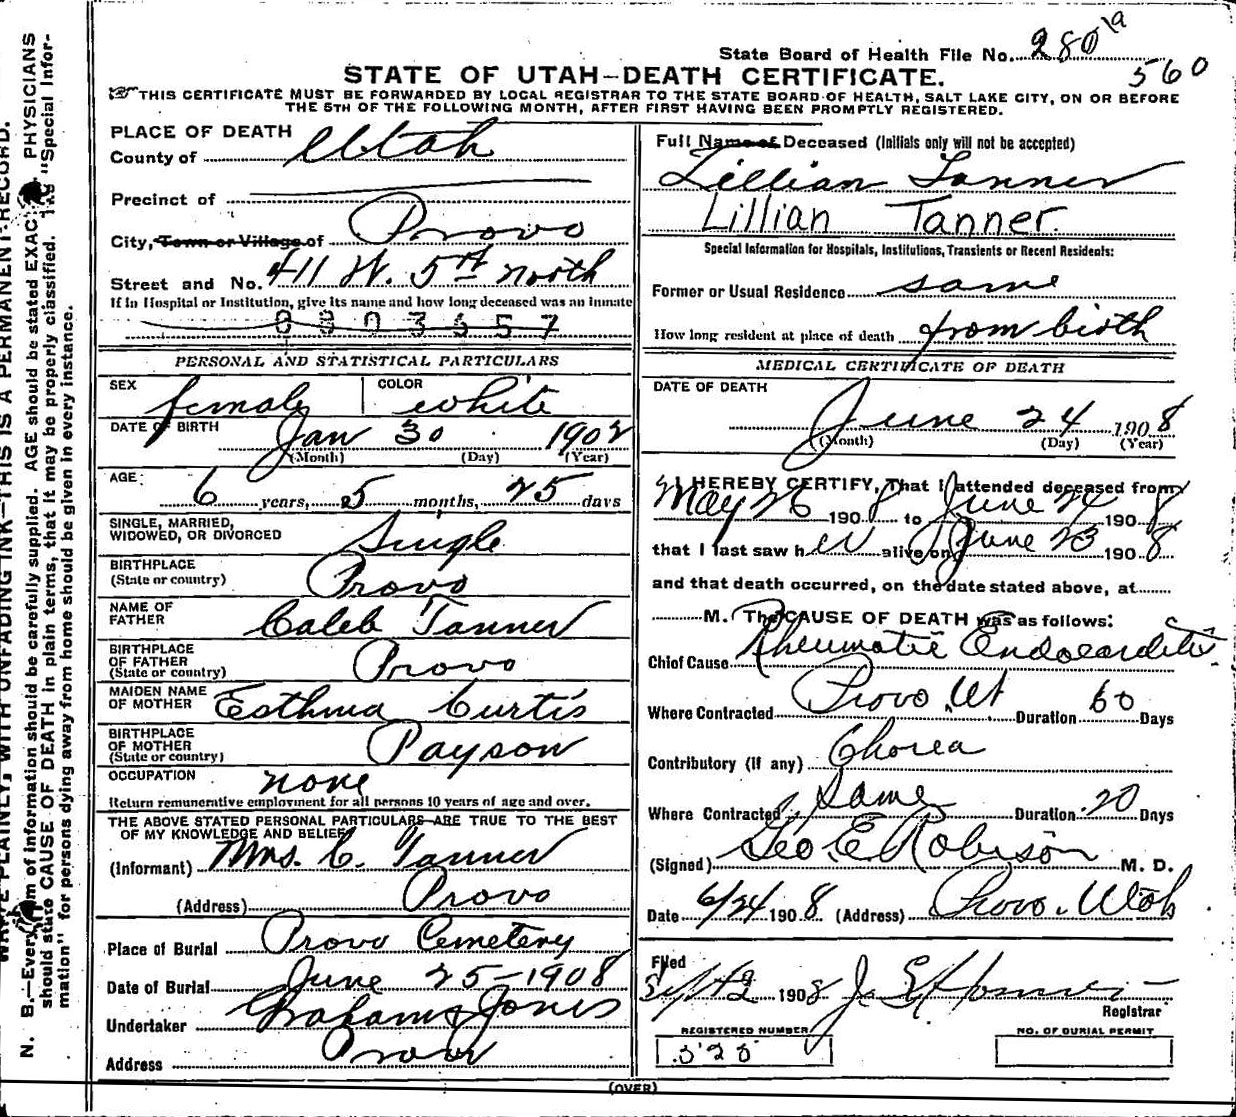 State Board of Health File No. 280 19
560
STATE OF UTAH—DEATH CERTIFICATE.
THIS CERTIFICATE MUST BE FORWARDED BY LOCAL REGISTRAR TO THE STATE BOARD OF HEALTH, SALT LAKE CITY, ON OR BEFORE
THE 5TH OF THE FOLLOWING MONTH, AFTER FIRST HAVING BEEN PROMPTLY REGISTERED.
PLACE OF DEATH
County of Utah
Precinct of
City, Town or Village of Provo
Street and No. 411 W. 5th North
If in Hospital or Institution, give its name and how long deceased was an inmate
0303657
PERSONAL AND STATISTICAL PARTICULARS
SEX female COLOR white
DATE OF BIRTH Jan 30 1902
(Month) (Day) (Year)
AGE: 6 years, 5 months, 25 days
SINGLE, MARRIED,
WIDOWED, OR DIVORCED Single
BIRTHPLACE
(State or country) Provo
NAME OF
FATHER Caleb Tanner
BIRTHPLACE
OF FATHER
(State or country) Provo
MAIDEN NAME
OF MOTHER Esthma Curtis
BIRTHPLACE
OF MOTHER
(State or country) Payson
OCCUPATION none
Return remunerative employment for all persons 10 years of age and over.
THE ABOVE STATED PERSONAL PARTICULARS ARE TRUE TO THE BEST
OF MY KNOWLEDGE AND BELIEF
(Informant) Mrs. C. Tanner
(Address) Provo
Place of Burial Provo Cemetery
Date of Burial June 25—1908
Undertaker Graham & Jones
Address Provo
Full Name of Deceased (Initials only will not be accepted)
Lillian Tanner
Lillian Tanner.
Special Information for Hospitals, Institutions, Transients or Recent Residents:
Former or Usual Residence same
How long resident at place of death from birth
MEDICAL CERTIFICATE OF DEATH
DATE OF DEATH
June 24 1908
(Month) (Day) (Year)
I HEREBY CERTIFY, That I attended deceased from
May 26 1908 to June 24 1908
that I last saw her alive on June 23 1908
and that death occurred, on the date stated above, at
M. The CAUSE OF DEATH was as follows:
Chief Cause Rheumatic Endocarditis.
Where Contracted Provo Ut Duration 60 Days
Contributory (if any) Chorea
Where Contracted Same Duration 20 Days
(Signed) Geo E Robison M. D.
Date 6/24 1908 (Address) Provo. Utah
Filed
1908
Registrar
REGISTERED NUMBER
NO. OF BURIAL PERMIT
(OVER)
N. B.—Every item of information should be carefully supplied. AGE should be stated EXACTLY. PHYSICIANS
should state CAUSE OF DEATH in plain terms, that it may be properly classified. The "Special Infor-
mation" for persons dying away from home should be given in every instance.
WRITE PLAINLY, WITH UNFADING INK—THIS IS A PERMANENT RECORD.